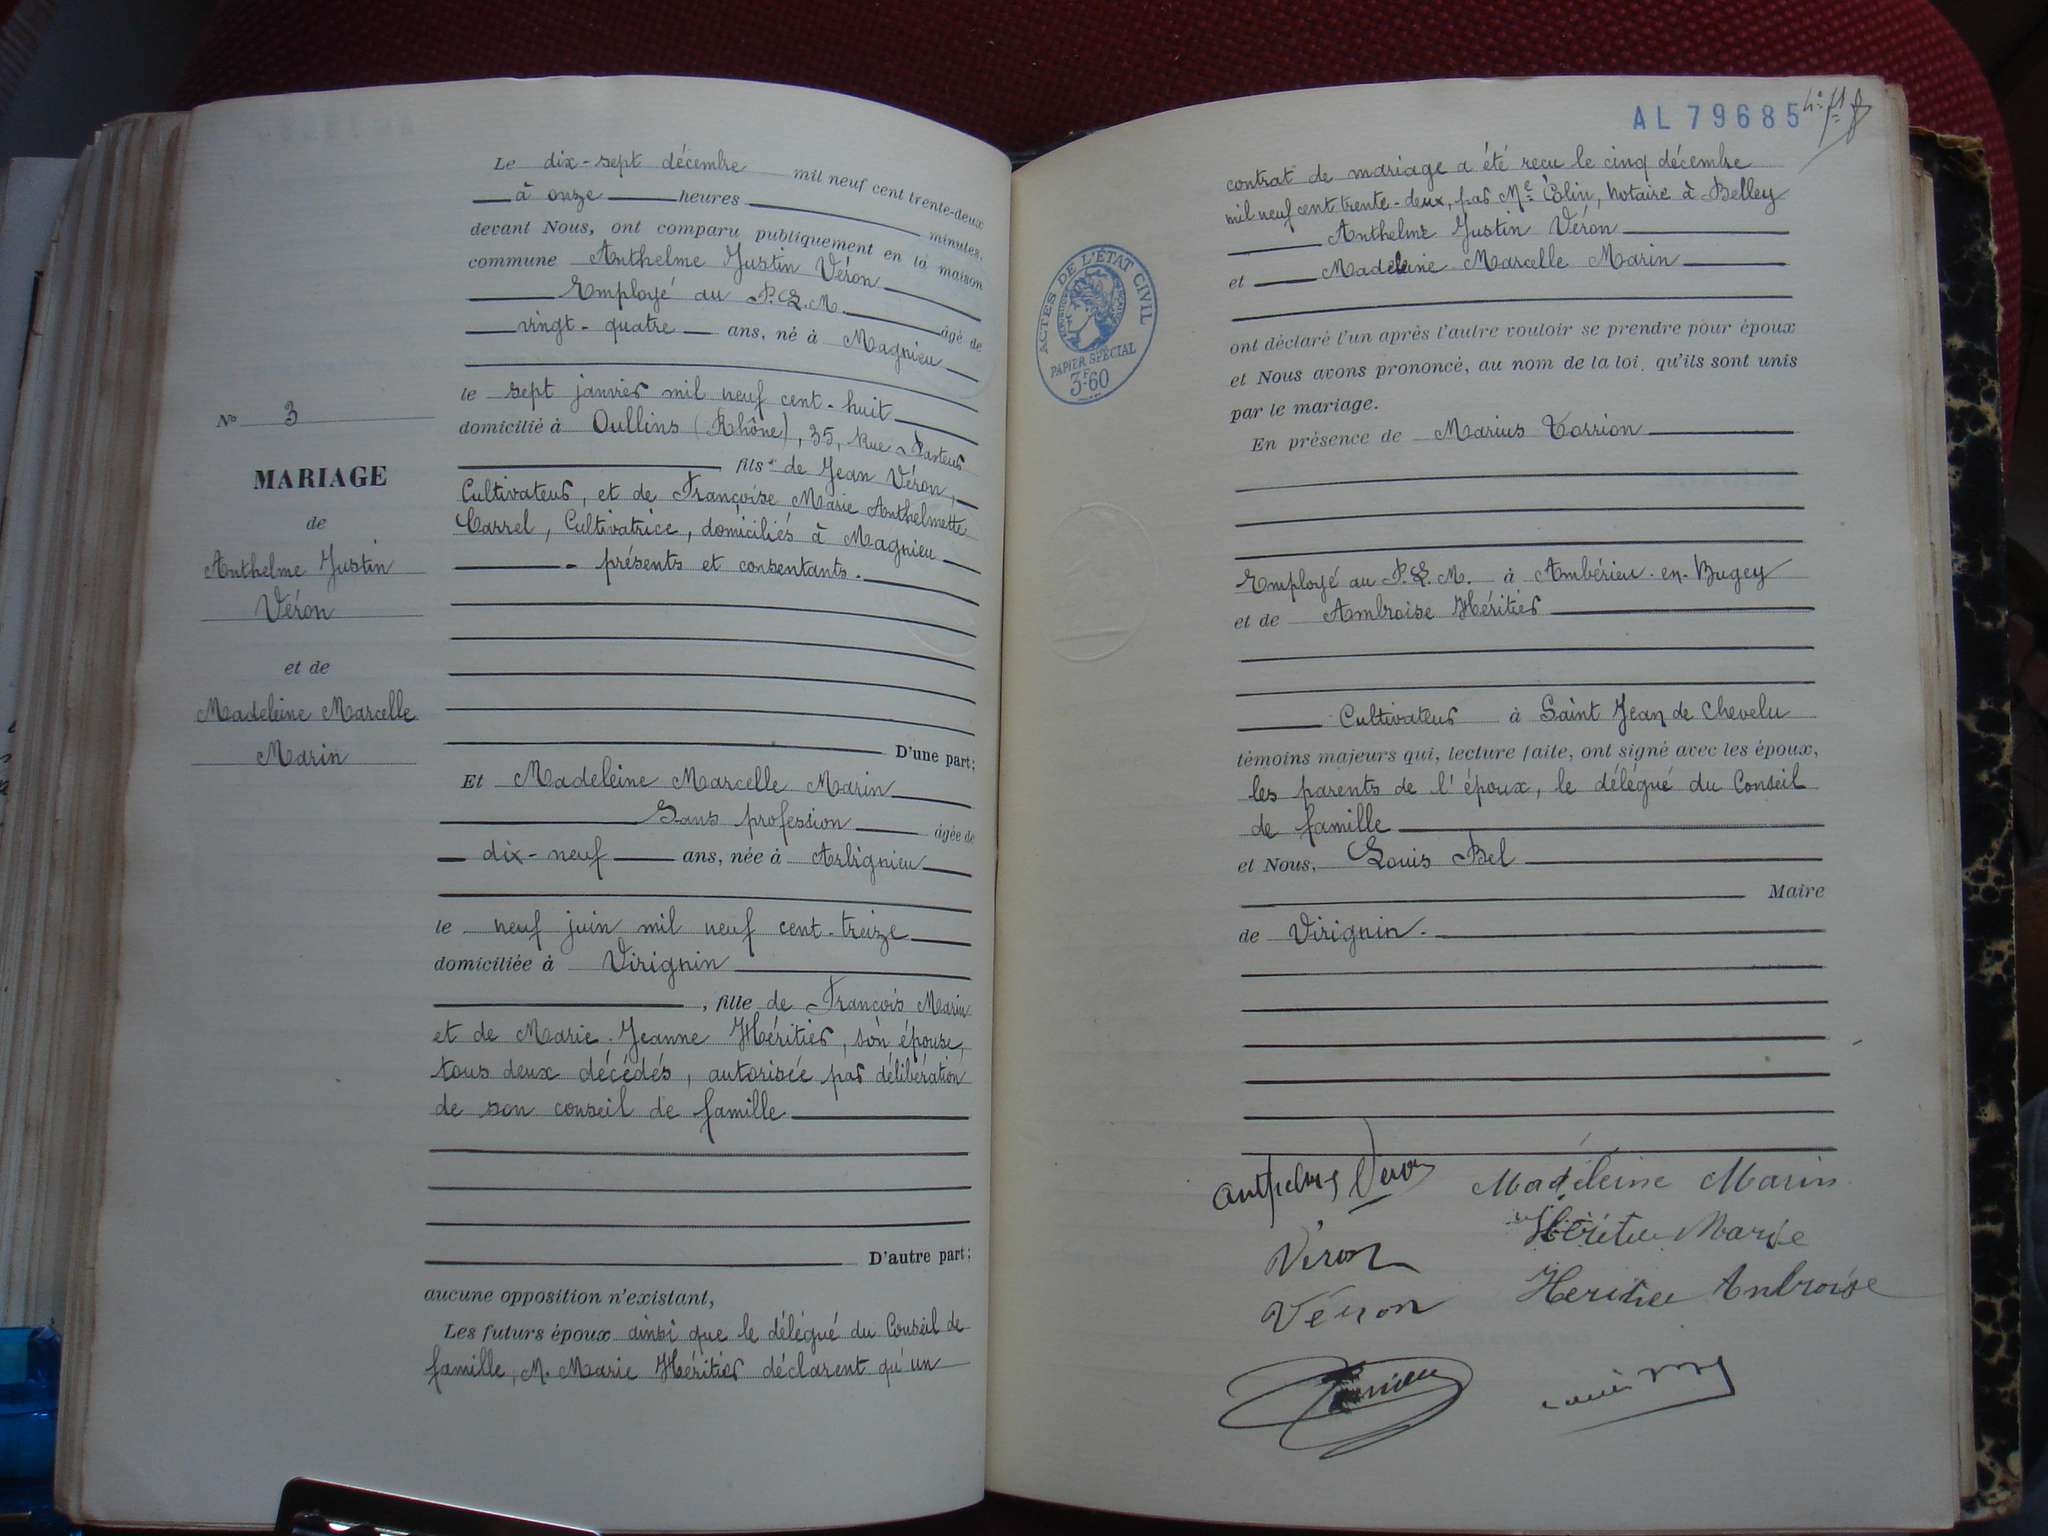 N° 3
MARIAGE
de
Anthelme Justin
Véron
et de
Madeleine Marcelle
Marin
Le dix-sept décembre mil neuf cent trente-deux
à onze heures minutes,
devant Nous, ont comparu publiquement en la maison
commune Anthelme Justin Véron
Employé au P.L.M. âgé de
vingt-quatre ans, né à Magnieu
le sept janvier mil neuf cent-huit
domicilié à Oullins (Rhône), 35, Rue Pasteur
fils de Jean Véron,
Cultivateur, et de Françoise Marie Anthelmette
Carrel, Cultivatrice, domiciliés à Magnieu
- présents et consentants.
D'une part;
Et Madeleine Marcelle Marin
Sans profession âgée de
dix-neuf ans, née à Arbignieu
le neuf juin mil neuf cent-treize
domiciliée à Virignin
, fille de François Marin
et de Marie-Jeanne Héritier, son épouse,
tous deux décédés, autorisée par délibération
de son conseil de famille
D'autre part;
aucune opposition n'existant,
Les futurs époux ainsi que le délégué du Conseil de
famille, M. Marie Héritier déclarent qu'un
AL 79685
contrat de mariage a été reçu le cinq décembre
mil neuf cent trente-deux, par Me Colin, notaire à Belley
Anthelme Justin Véron
et Madeleine Marcelle Marin
ont déclaré l'un après l'autre vouloir se prendre pour époux
et Nous avons prononcé, au nom de la loi, qu'ils sont unis
par le mariage.
En présence de Marius Torrion
Employé au P.L.M. à Ambérieu-en-Bugey
et de Ambroise Héritier
Cultivateur à Saint Jean de Chevelu
témoins majeurs qui, lecture faite, ont signé avec les époux,
les parents de l'époux, le délégué du Conseil
de famille
et Nous, Louis Bel
Maire
de Virignin.
ACTES DE L'ÉTAT CIVIL
PAPIER SPÉCIAL
3F60
Anthelme Veron Madéleine Marin
Héritier Marie
Véron
Heritier Ambroise
Véron